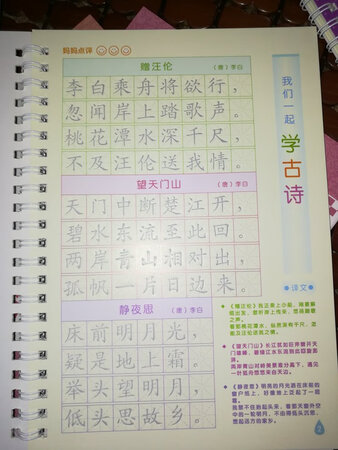 妈妈点评
赠汪伦
(唐)李白
李白乘舟将欲行,
忽闻岸上踏歌声。
桃花潭水深千尺,
不及汪伦送我情。
望天门山
(唐)李白
天门中断楚江开,
碧水东流至此回。
两岸青山相对出,
孤帆一片日边来。
静夜思
(唐)李白
床前明月光,
疑是地上霜。
举头望明月,
低头思故乡。
我们一起
学古诗
译文
《赠汪伦》我正乘上小船,刚要解
缆出发,忽听岸上传来,悠扬踏歌
之声。
看那桃花潭水,纵然深有千尺,怎
能及汪伦送我之情。
《望天门山》长江犹如巨斧劈开天
门雄峰,碧绿江水东流到此回旋澎
湃。
两岸青山对峙美景难分高下,遇见
一叶孤舟悠悠来自天边。
《静夜思》明亮的月光洒在床前的
窗户纸上,好像地上泛起了一层
霜。
我禁不住抬起头来,看那天窗外空
中的一轮明月,不由得低头沉思,
想起远方的家乡。